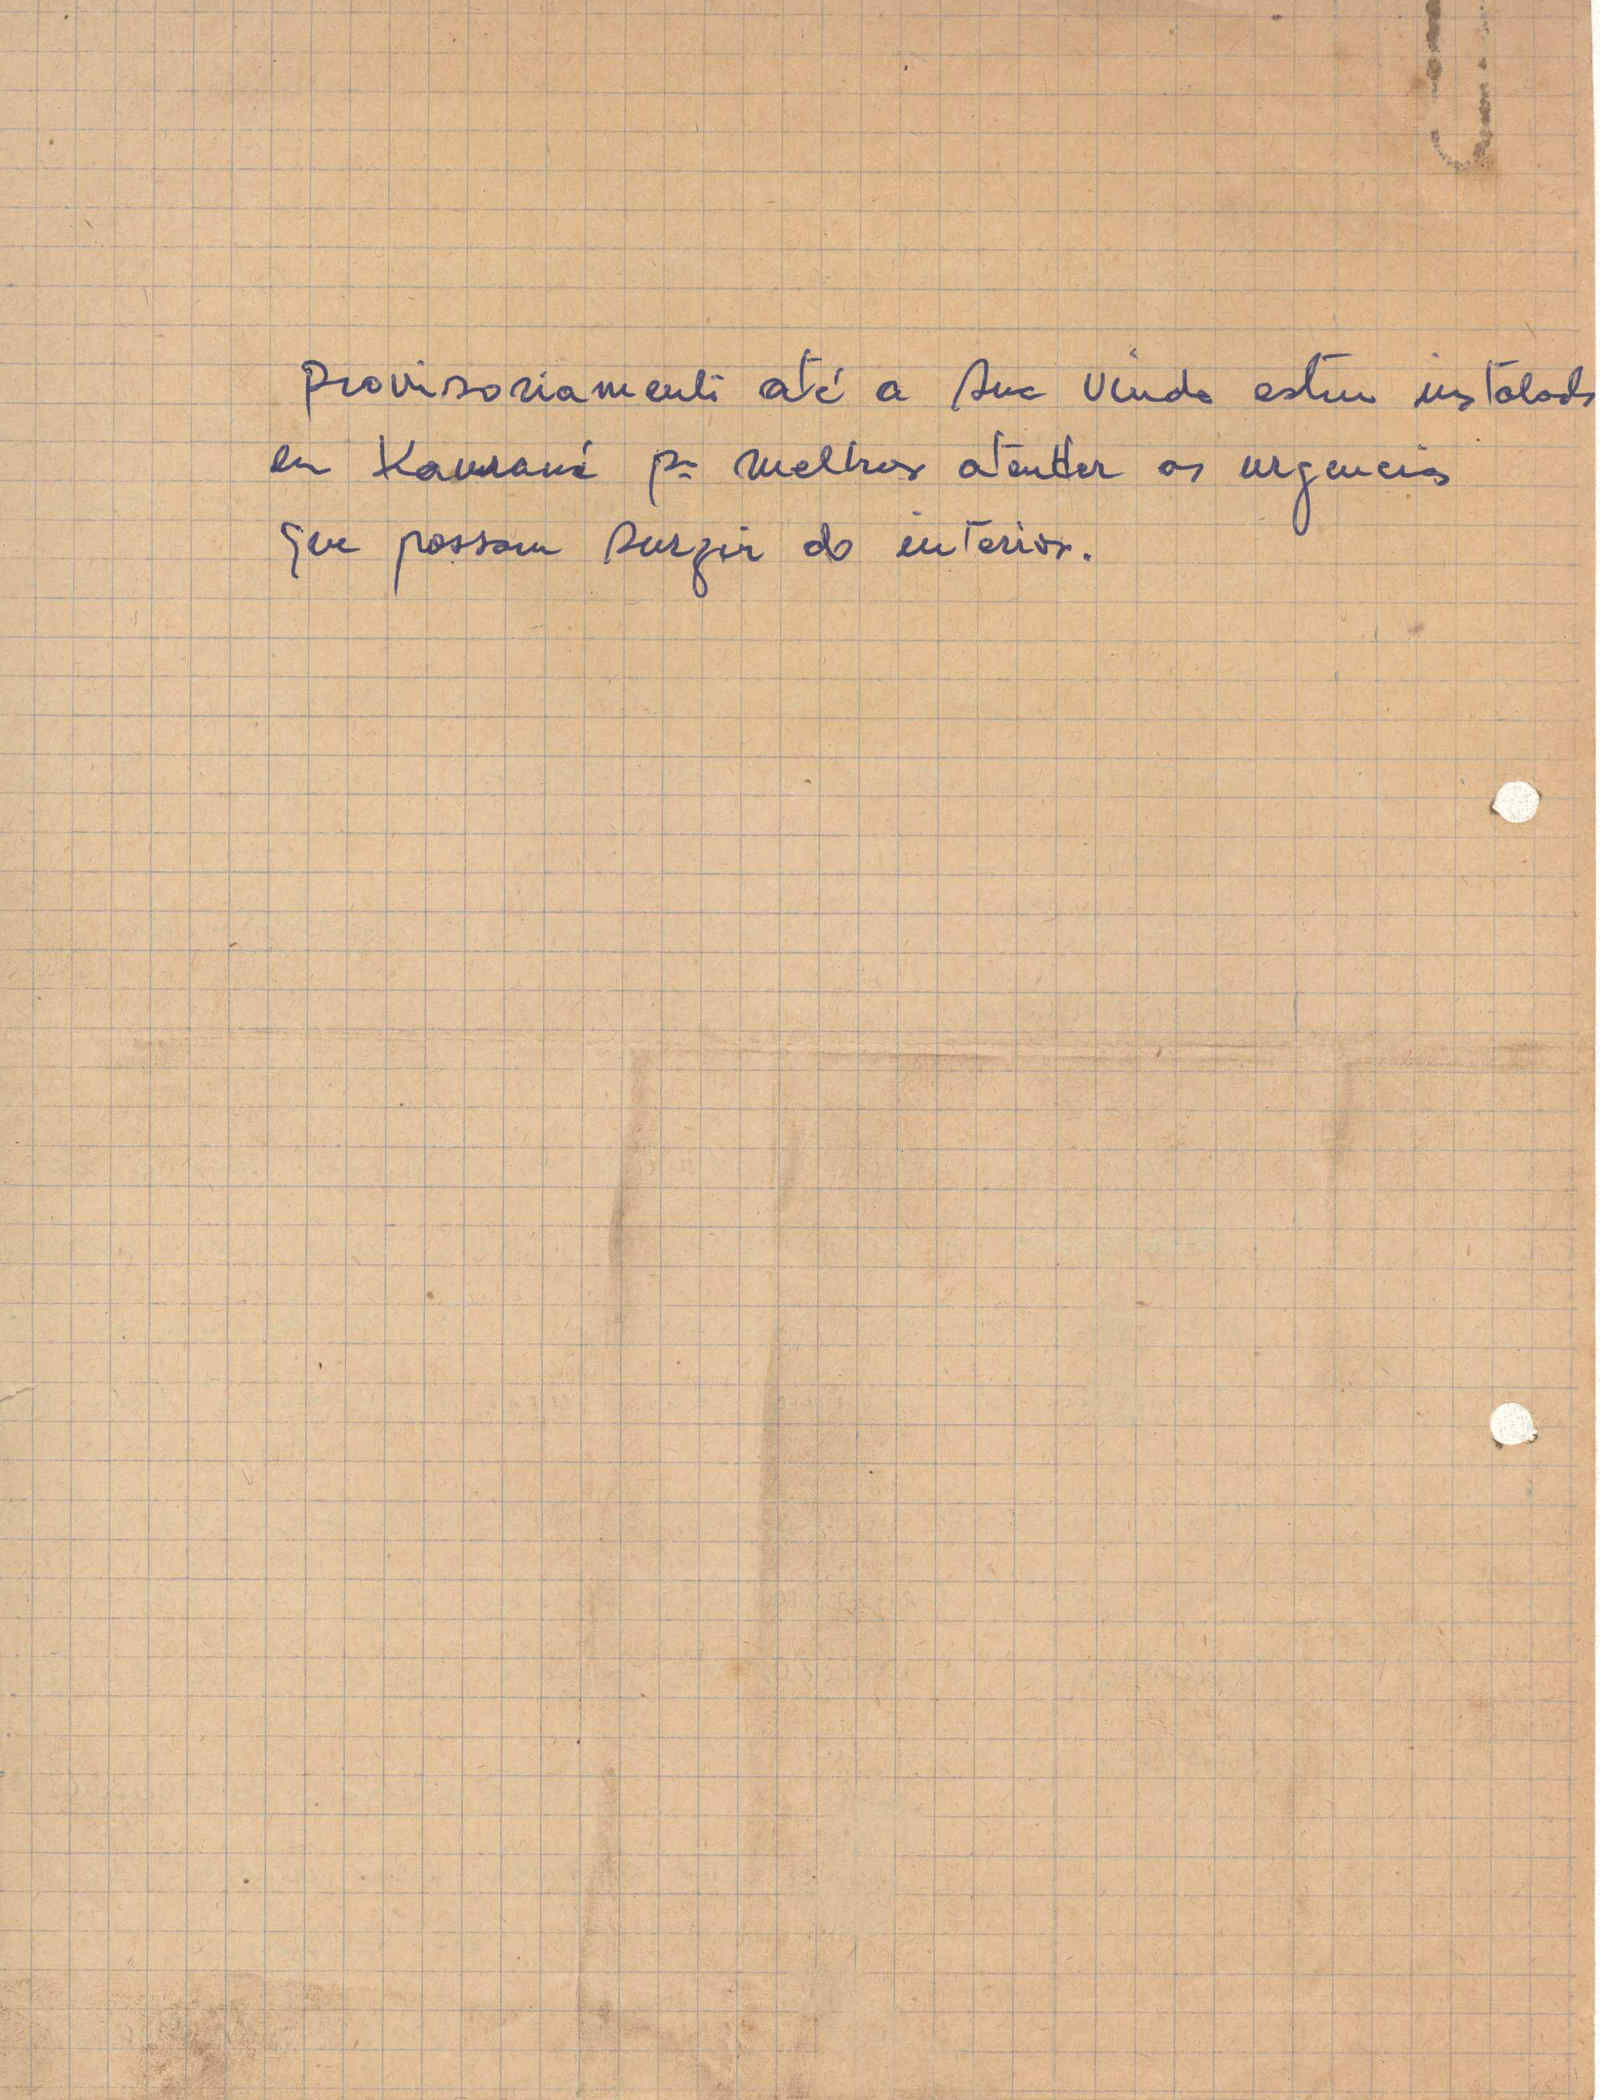 provisoriamente até a sua vinda estou instalado
em p.ª melhor atender as urgencias
que possam surgir do interior.